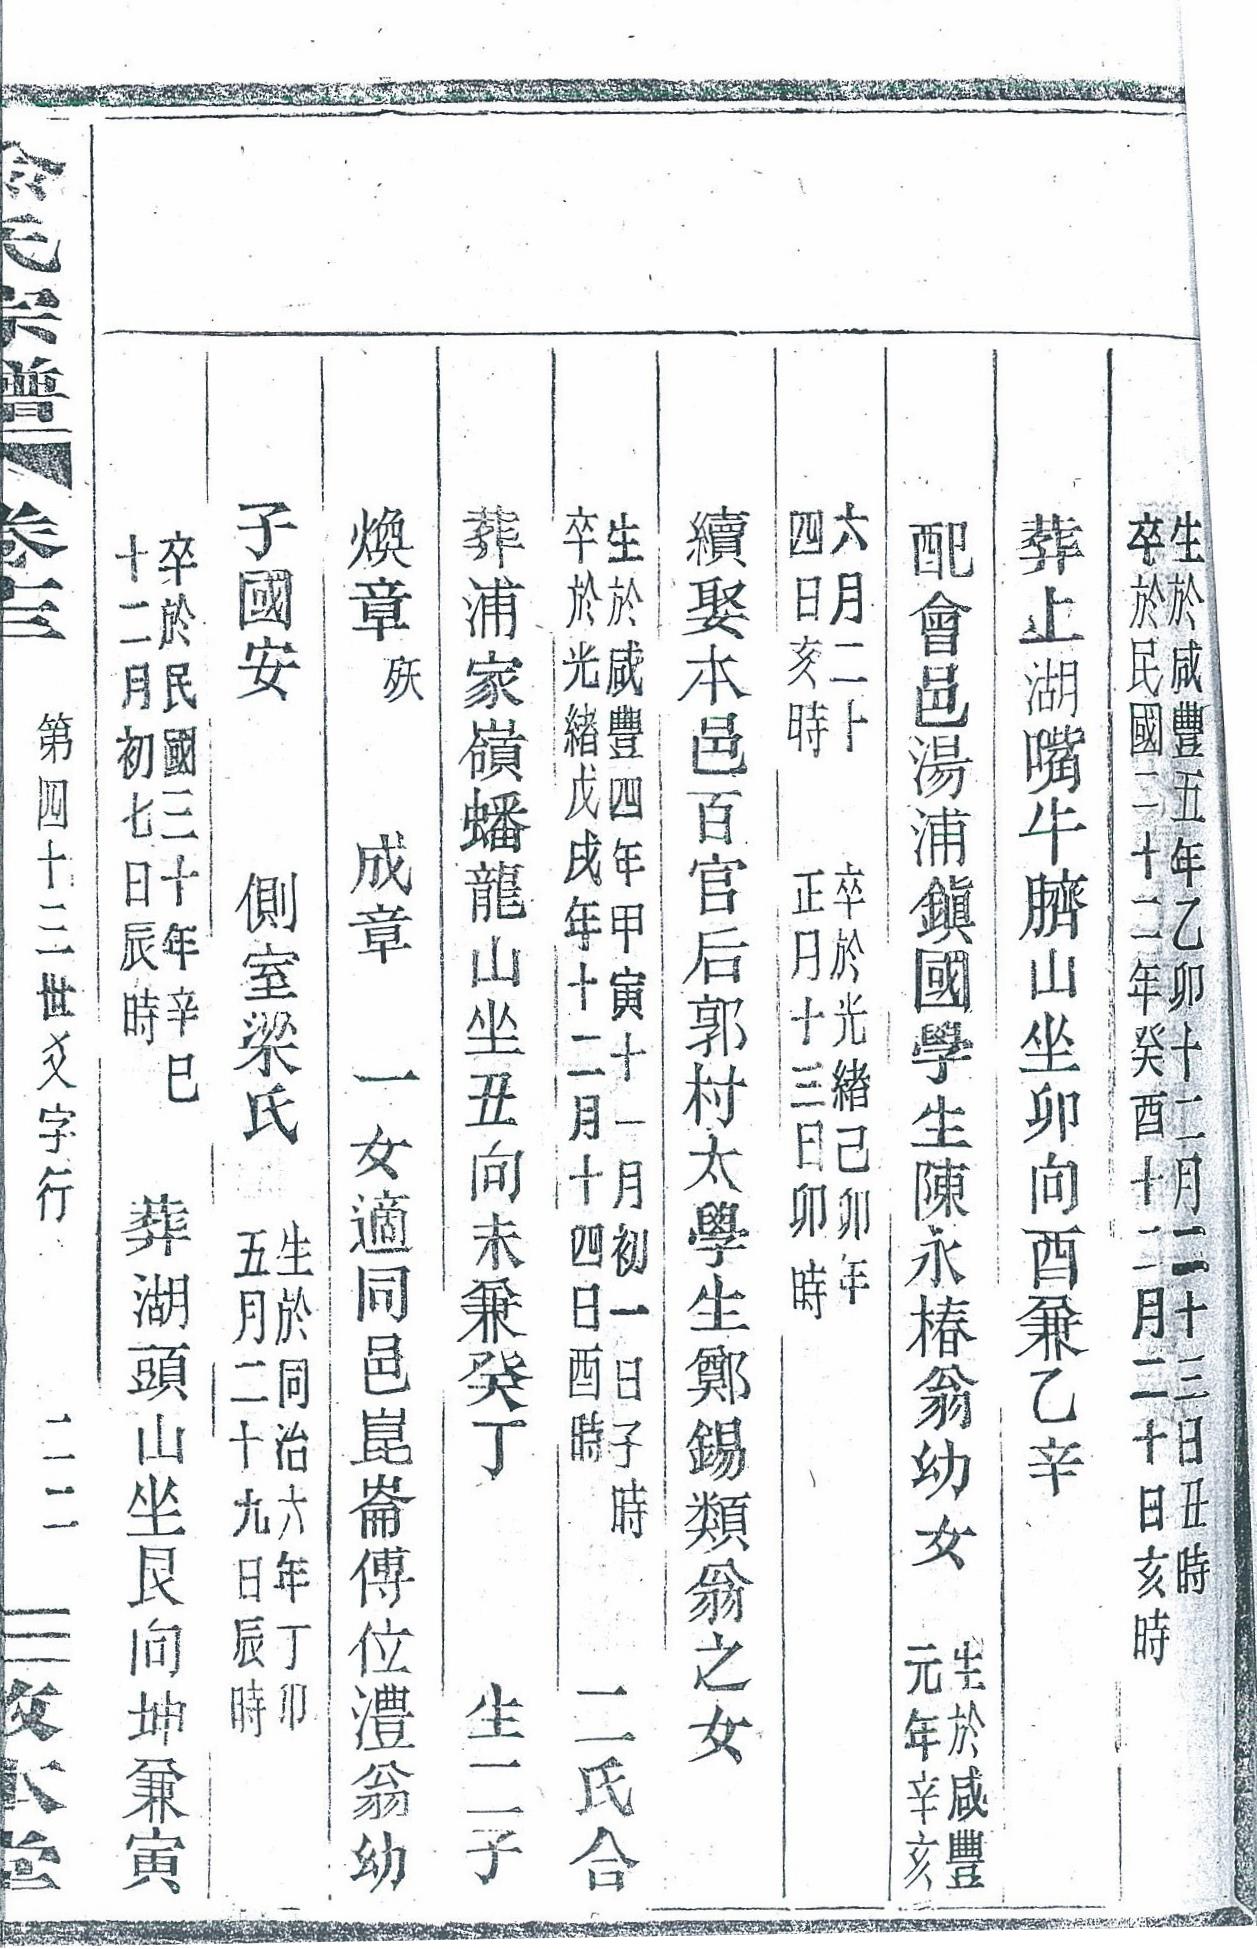 生於咸豐五年乙卯十二月二十三日丑時
卒於民國二十二年癸酉十二月二十日亥時
葬上湖嘴牛臍山坐卯向酉兼乙辛
配會邑湯浦鎮國學生陳永椿翁幼女
生於咸豐
元年辛亥
六月二十
四日亥時
卒於光緒己卯年
正月十三日卯時
續娶本邑百官后郭村太學生鄭錫類翁之女
生於咸豐四年甲寅十一月初一日子時
卒於光緒戊戌年十二月十四日酉時
二氏合
葬浦家嶺蟠龍山坐丑向未兼癸丁
生二子
煥章
殀
成章
一女適同邑崑崙傅位澧翁幼
子國安
側室梁氏
生於同治六年丁卯
五月二十九日辰時
卒於民國三十年辛巳
十二月初七日辰時
葬湖頭山坐艮向坤兼寅
氏宗譜
卷三
第四十三世爻字行
二二
本堂